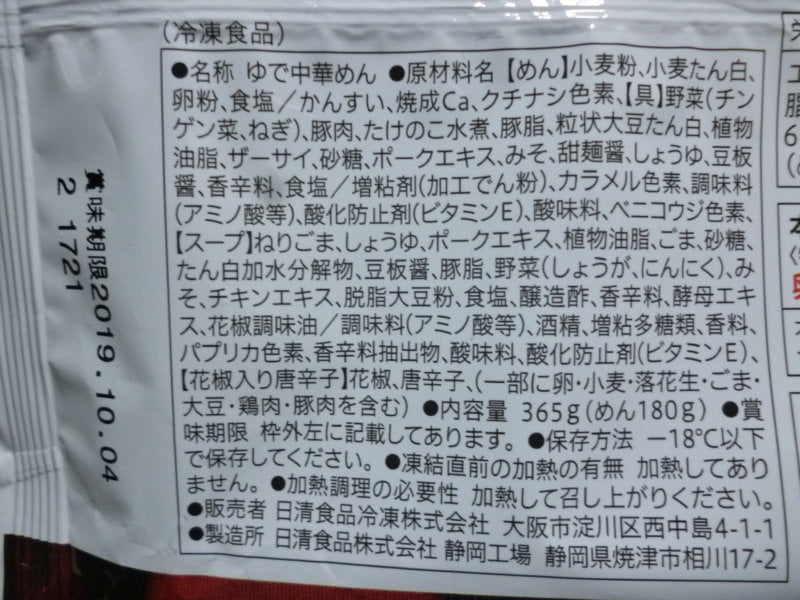 (冷凍食品)
●名称 ゆで中華めん ●原材料名 【めん】小麦粉、小麦たん白、
卵粉、食塩/かんすい、焼成Ca、クチナシ色素、【具】野菜(チン
ゲン菜、ねぎ)、豚肉、たけのこ水煮、豚脂、粒状大豆たん白、植物
油脂、ザーサイ、砂糖、ポークエキス、みそ、甜麺醤、しょうゆ、豆板
醤、香辛料、食塩/増粘剤(加工でん粉)、カラメル色素、調味料
(アミノ酸等)、酸化防止剤(ビタミンE)、酸味料、ベニコウジ色素、
【スープ】ねりごま、しょうゆ、ポークエキス、植物油脂、ごま、砂糖、
たん白加水分解物、豆板醤、豚脂、野菜(しょうが、にんにく)、み
そ、チキンエキス、脱脂大豆粉、食塩、醸造酢、香辛料、酵母エキ
ス、花椒調味油/調味料(アミノ酸等)、酒精、増粘多糖類、香料、
パプリカ色素、香辛料抽出物、酸味料、酸化防止剤(ビタミンE)、
【花椒入り唐辛子】花椒、唐辛子、(一部に卵・小麦・落花生・ごま・
大豆・鶏肉・豚肉を含む) ●内容量 365g(めん180g) ●賞
味期限 枠外左に記載してあります。 ●保存方法 −18℃以下
で保存してください。 ●凍結直前の加熱の有無 加熱してあり
ません。 ●加熱調理の必要性 加熱して召し上がりください。
●販売者 日清食品冷凍株式会社 大阪市淀川区西中島4-1-1
●製造所 日清食品株式会社 静岡工場 静岡県焼津市相川17-2
賞味期限2019.10.04
2 1721